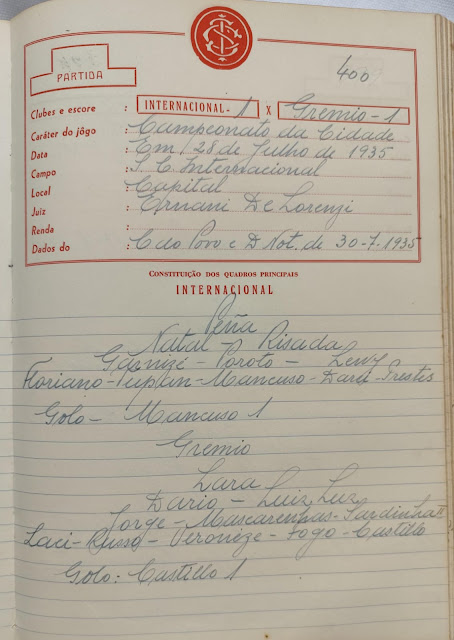 PARTIDA
400
Clubes e escore : INTERNACIONAL - 1 X Gremio - 1
Caráter do jôgo : Campeonato da Cidade
Data : Em 28 de Julho de 1935
Campo : S. C. Internacional
Local : Capital
Juiz : Ernani De Lorenzi
Renda :
Dados do : C do Povo e D. Not. de 30-7-1935
CONSTITUIÇÃO DOS QUADROS PRINCIPAIS
INTERNACIONAL
Peña
Natal - Risada
Garnizé - Poroto - Levy
Floriano - Tuplan - Mancuso - Darci - Prestes
Golo - Mancuso 1
Gremio
Lara
Dario - Luiz Luz
Jorge - Mascarenhas - Sardinha II
Laci - Russo - Veronèze - Fogo - Castillo
Golo: Castillo 1